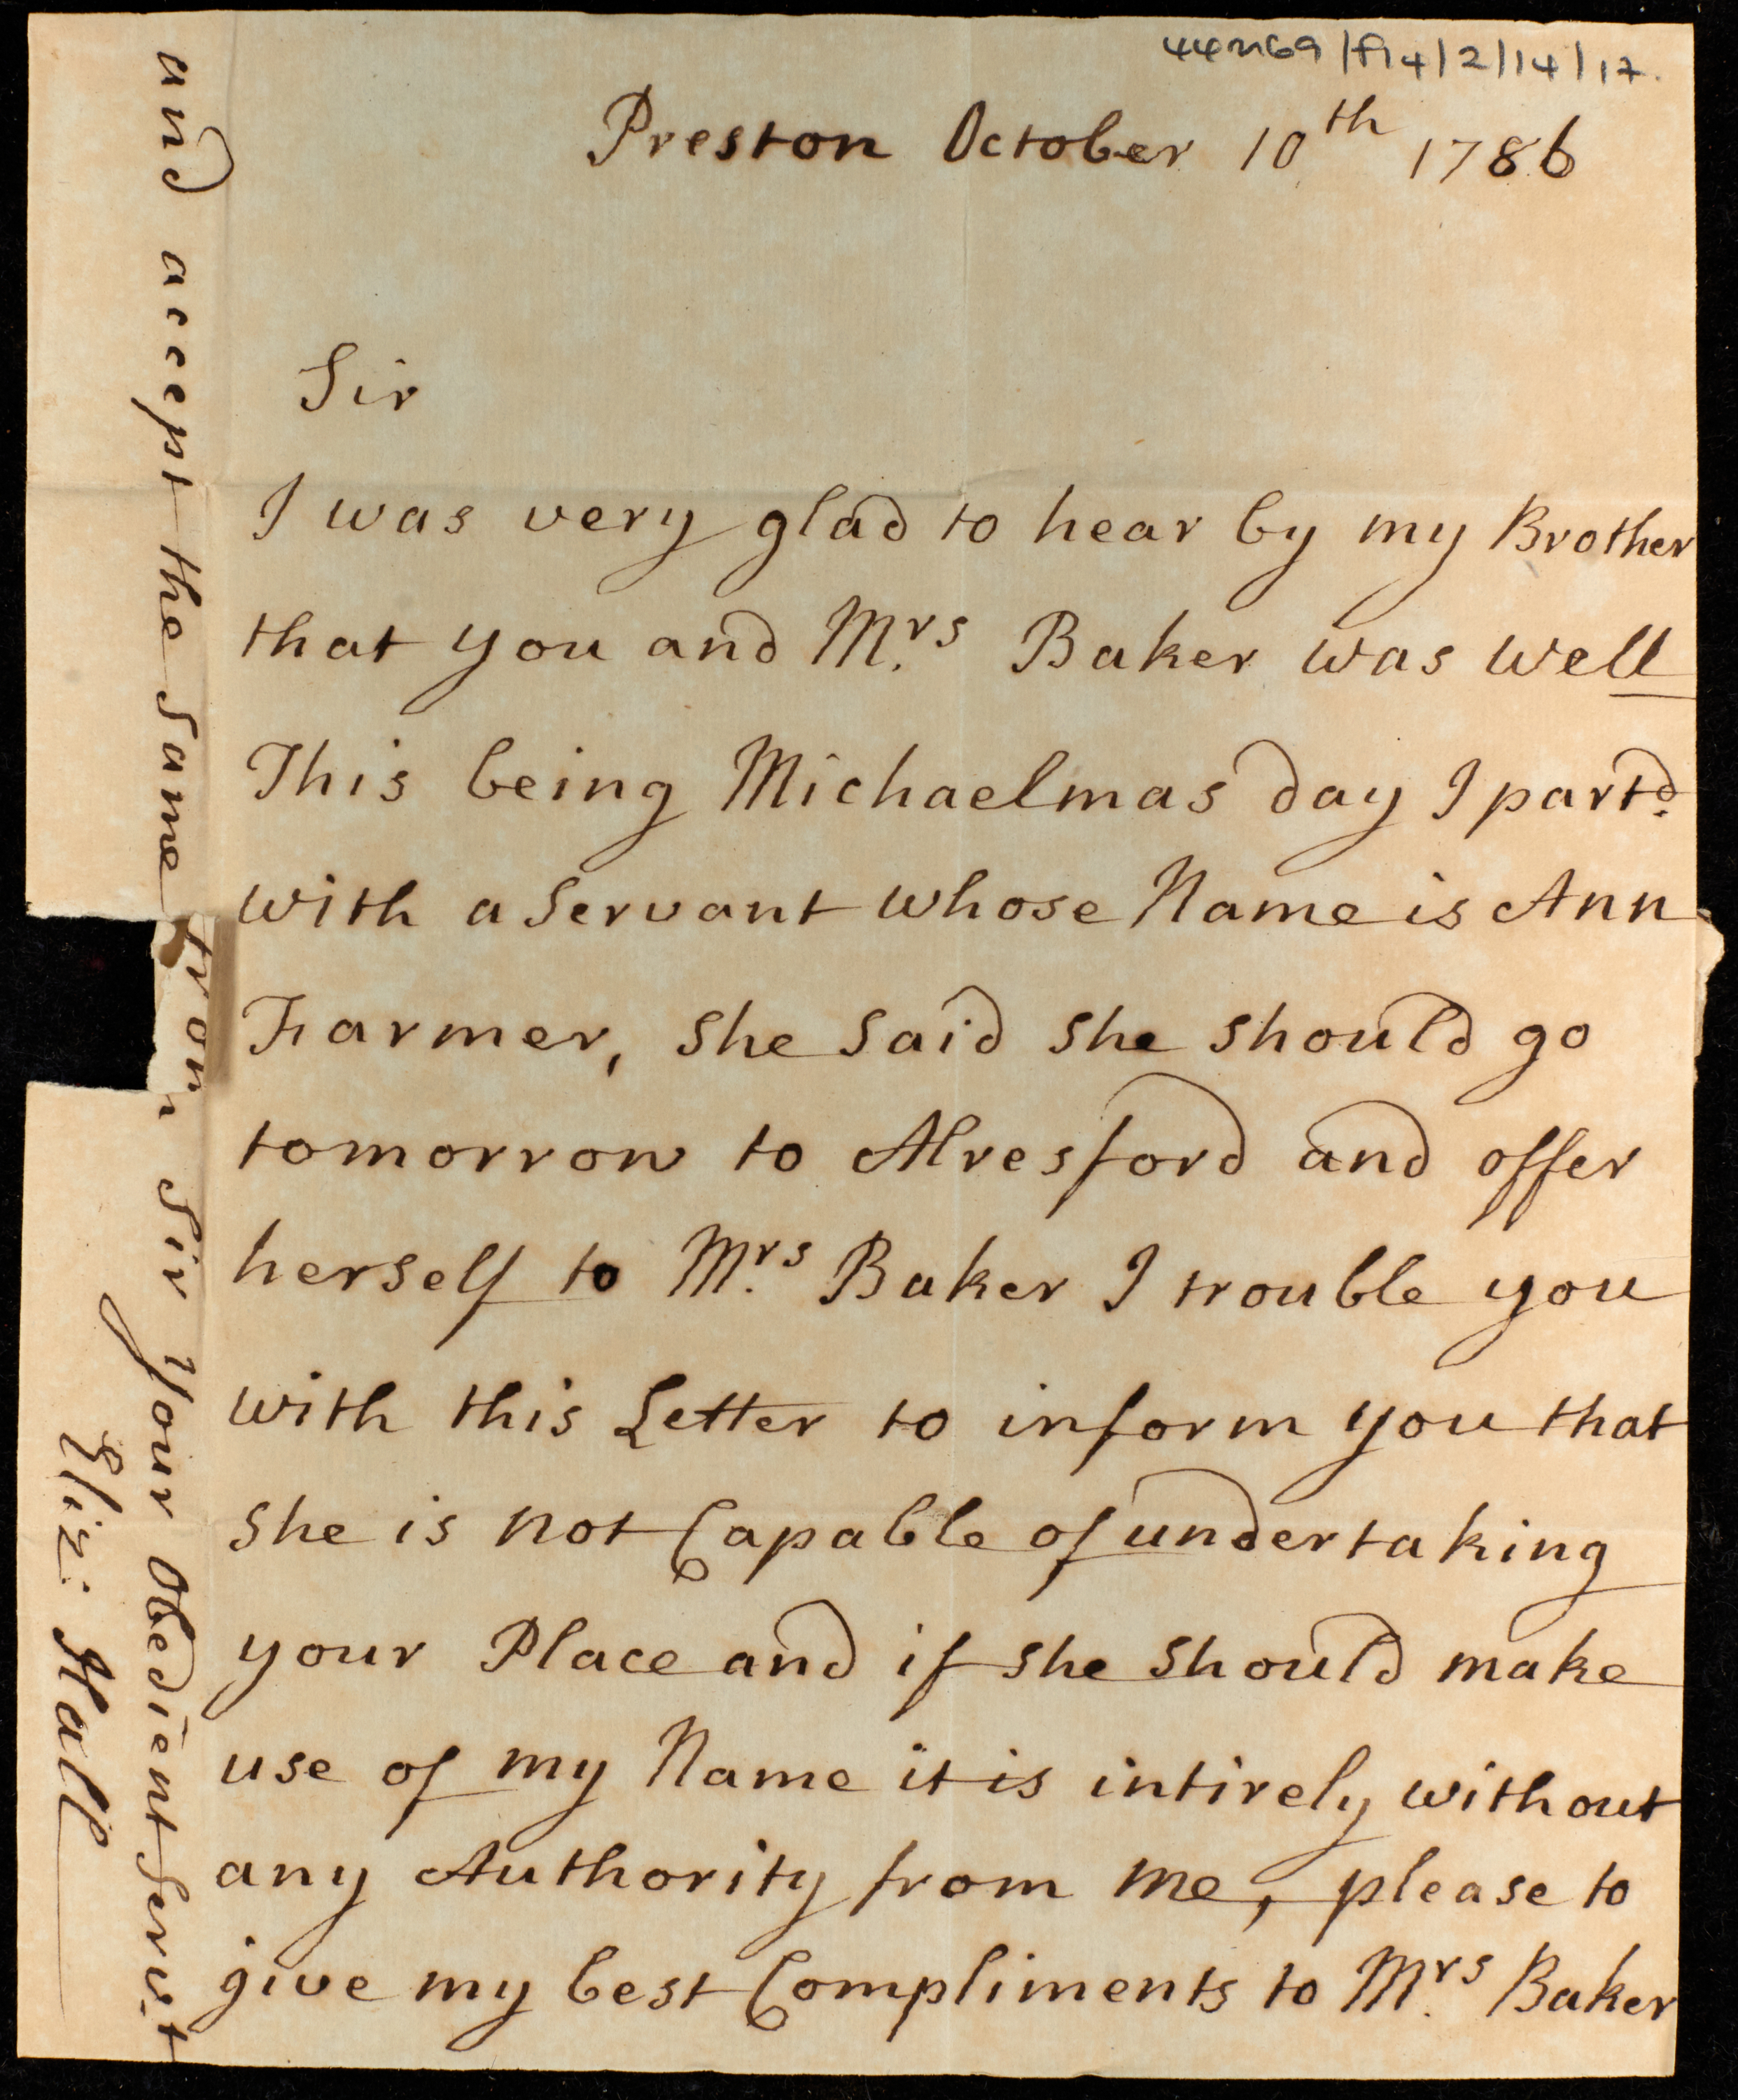 44M69/F14/2/14/17.
Preston October 10th 1786
Sir
I was very glad to hear by my Brother
that you and Mrs Baker was well
This being Michaelmas day I partd.
with a Servant whose Name is Ann
Farmer, she said she should go
tomorrow to Alresford and offer
herself to Mrs Baker I trouble you
with this Letter to inform you that
she is not Capable of undertaking
your Place and if she should make
use of my Name it is intirely without
any Authority from me, please to
give my best Compliments to Mrs Baker
and accept the same from Sir your Obedient Servt
Eliz: Hall